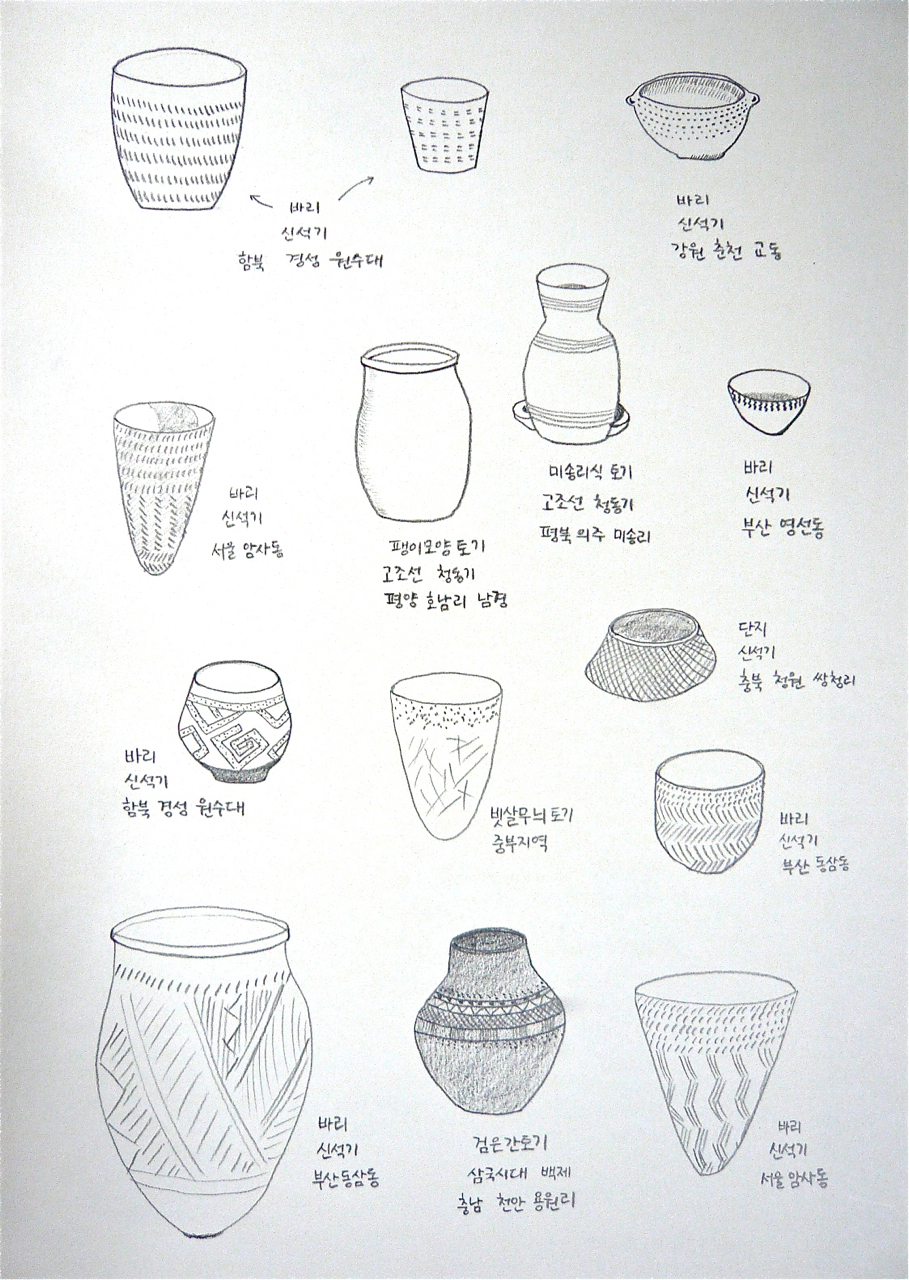 바리
신석기
함북 경성 원수대
바리
신석기
강원 춘천 교동
미송리식 토기
고조선 청동기
평북 의주 미송리
바리
신석기
부산 영선동
바리
신석기
서울 암사동
팽이모양 토기
고조선 청동기
평양 호남리 남경
단지
신석기
충북 청원 쌍청리
바리
신석기
함북 경성 원수대
빗살무늬 토기
중부지역
바리
신석기
부산 동삼동
바리
신석기
부산동삼동
검은간토기
삼국시대 백제
충남 천안 용원리
바리
신석기
서울 암사동